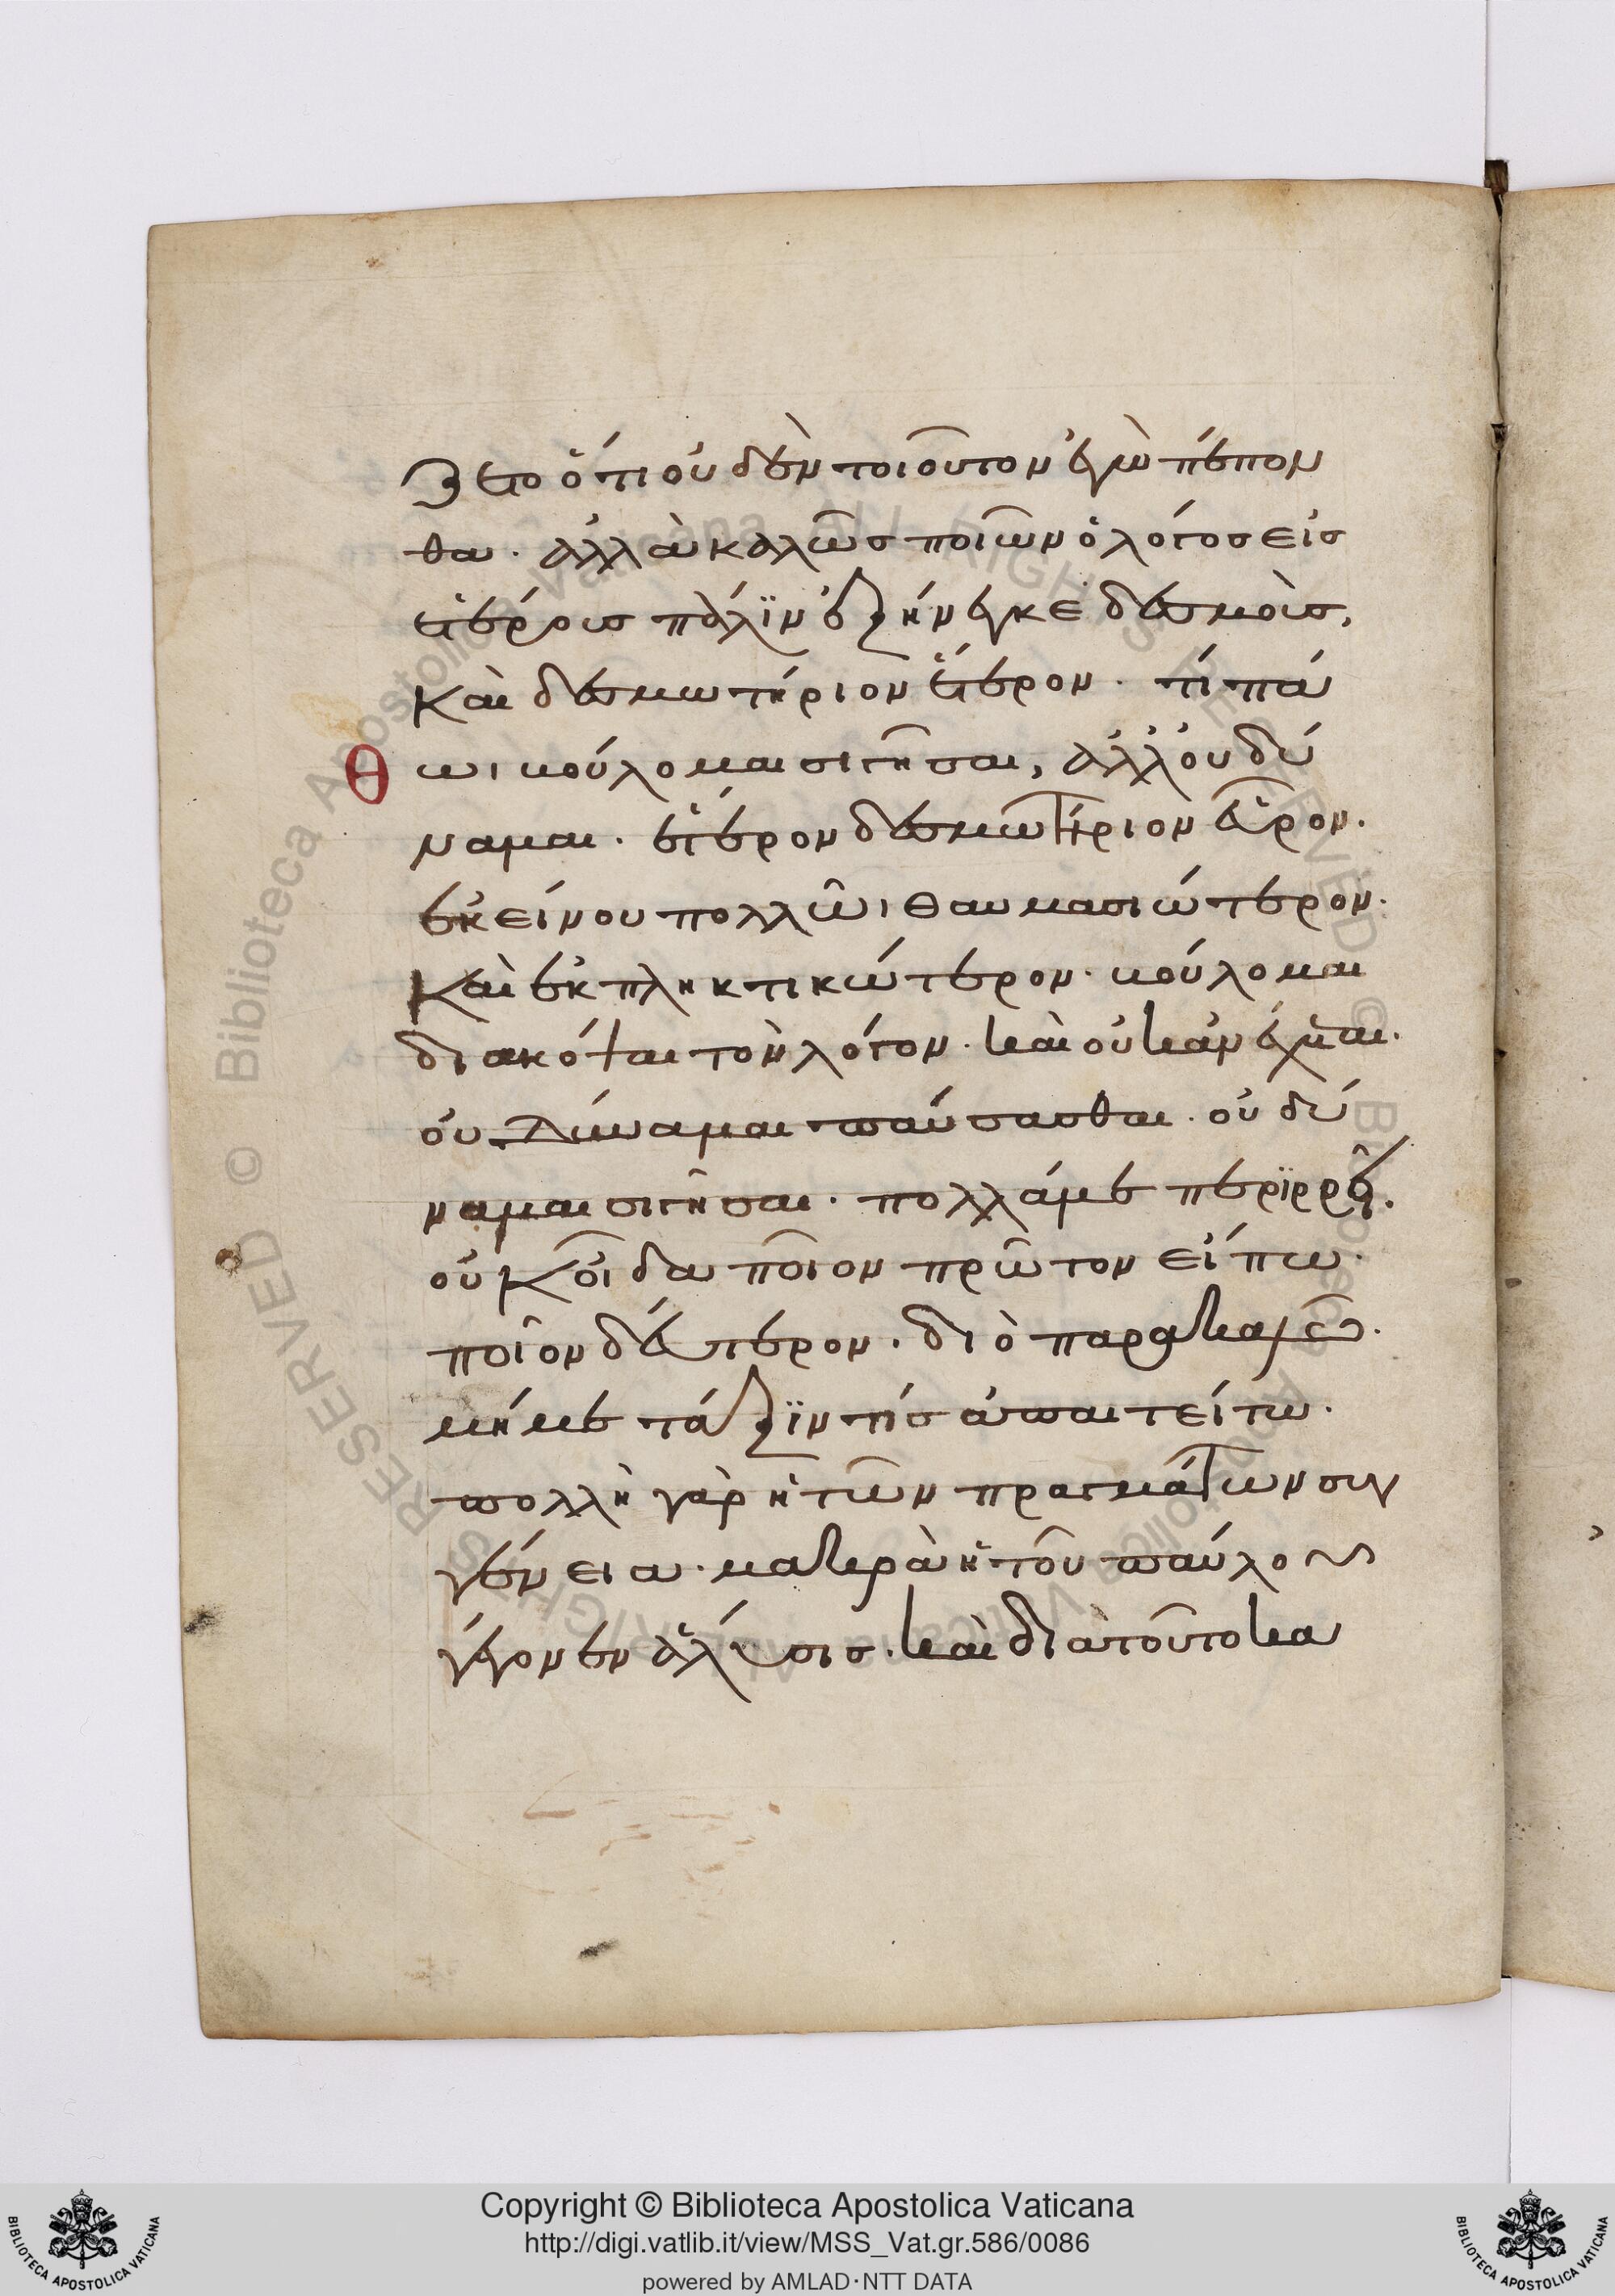 ζετο ὅτι οὐδὲν τοιοῦτον ἐγὼ πέπον
θα. ἀλλὰ καλῶς ποιῶν ὁ λόγος εἰς
ἑτέροις πάλϊν ἐξήνεγκε δεσμοῖς,
καὶ δεσμωτήριον ἕτερον. τί πά
Θ
ωι βούλομαι σιγῆσαι, ἀλλ' οὐ δύ
ναμαι. ἕτερον δεσμωτήριον εὗρον.
ἐκείνου πολλῶι θαυμασιώτερον.
καὶ ἐκπληκτικώτερον. βούλομαι
διακόψαι τὸν λόγον. καὶ οὐκ ἀνέχεται.
οὐ δύναμαι παύσασθαι. οὐ δύ
ναμαι σιγῆσαι. πολλά με περϊρρεῖ.
οὐκ οἶδα ποῖον πρῶτον εἴπω.
ποῖον δεύτερον. διὸ παρακαλῶ.
μή με τάξϊν τίς ἀπαιτείτω.
πολλὴ γὰρ ἡ τῶν πραγμάτων συγ
γένεια. μακρὰ ἡ τοῦ παύλου
γέγονεν ἅλυσις. καὶ διὰ τοῦτο κα
Copyright © Biblioteca Apostolica Vaticana
http://digi.vatlib.it/view/MSS_Vat.gr.586/0086
powered by AMLAD·NTT DATA
BIBLIOTECA APOSTOLICA VATICANA
BIBLIOTECA APOSTOLICA VATICANA